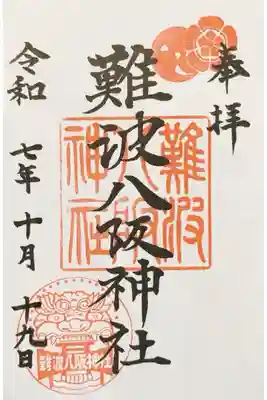 奉拝
難波八阪神社
難波
八阪
神社
令和七年十月十九日
難波八阪神社